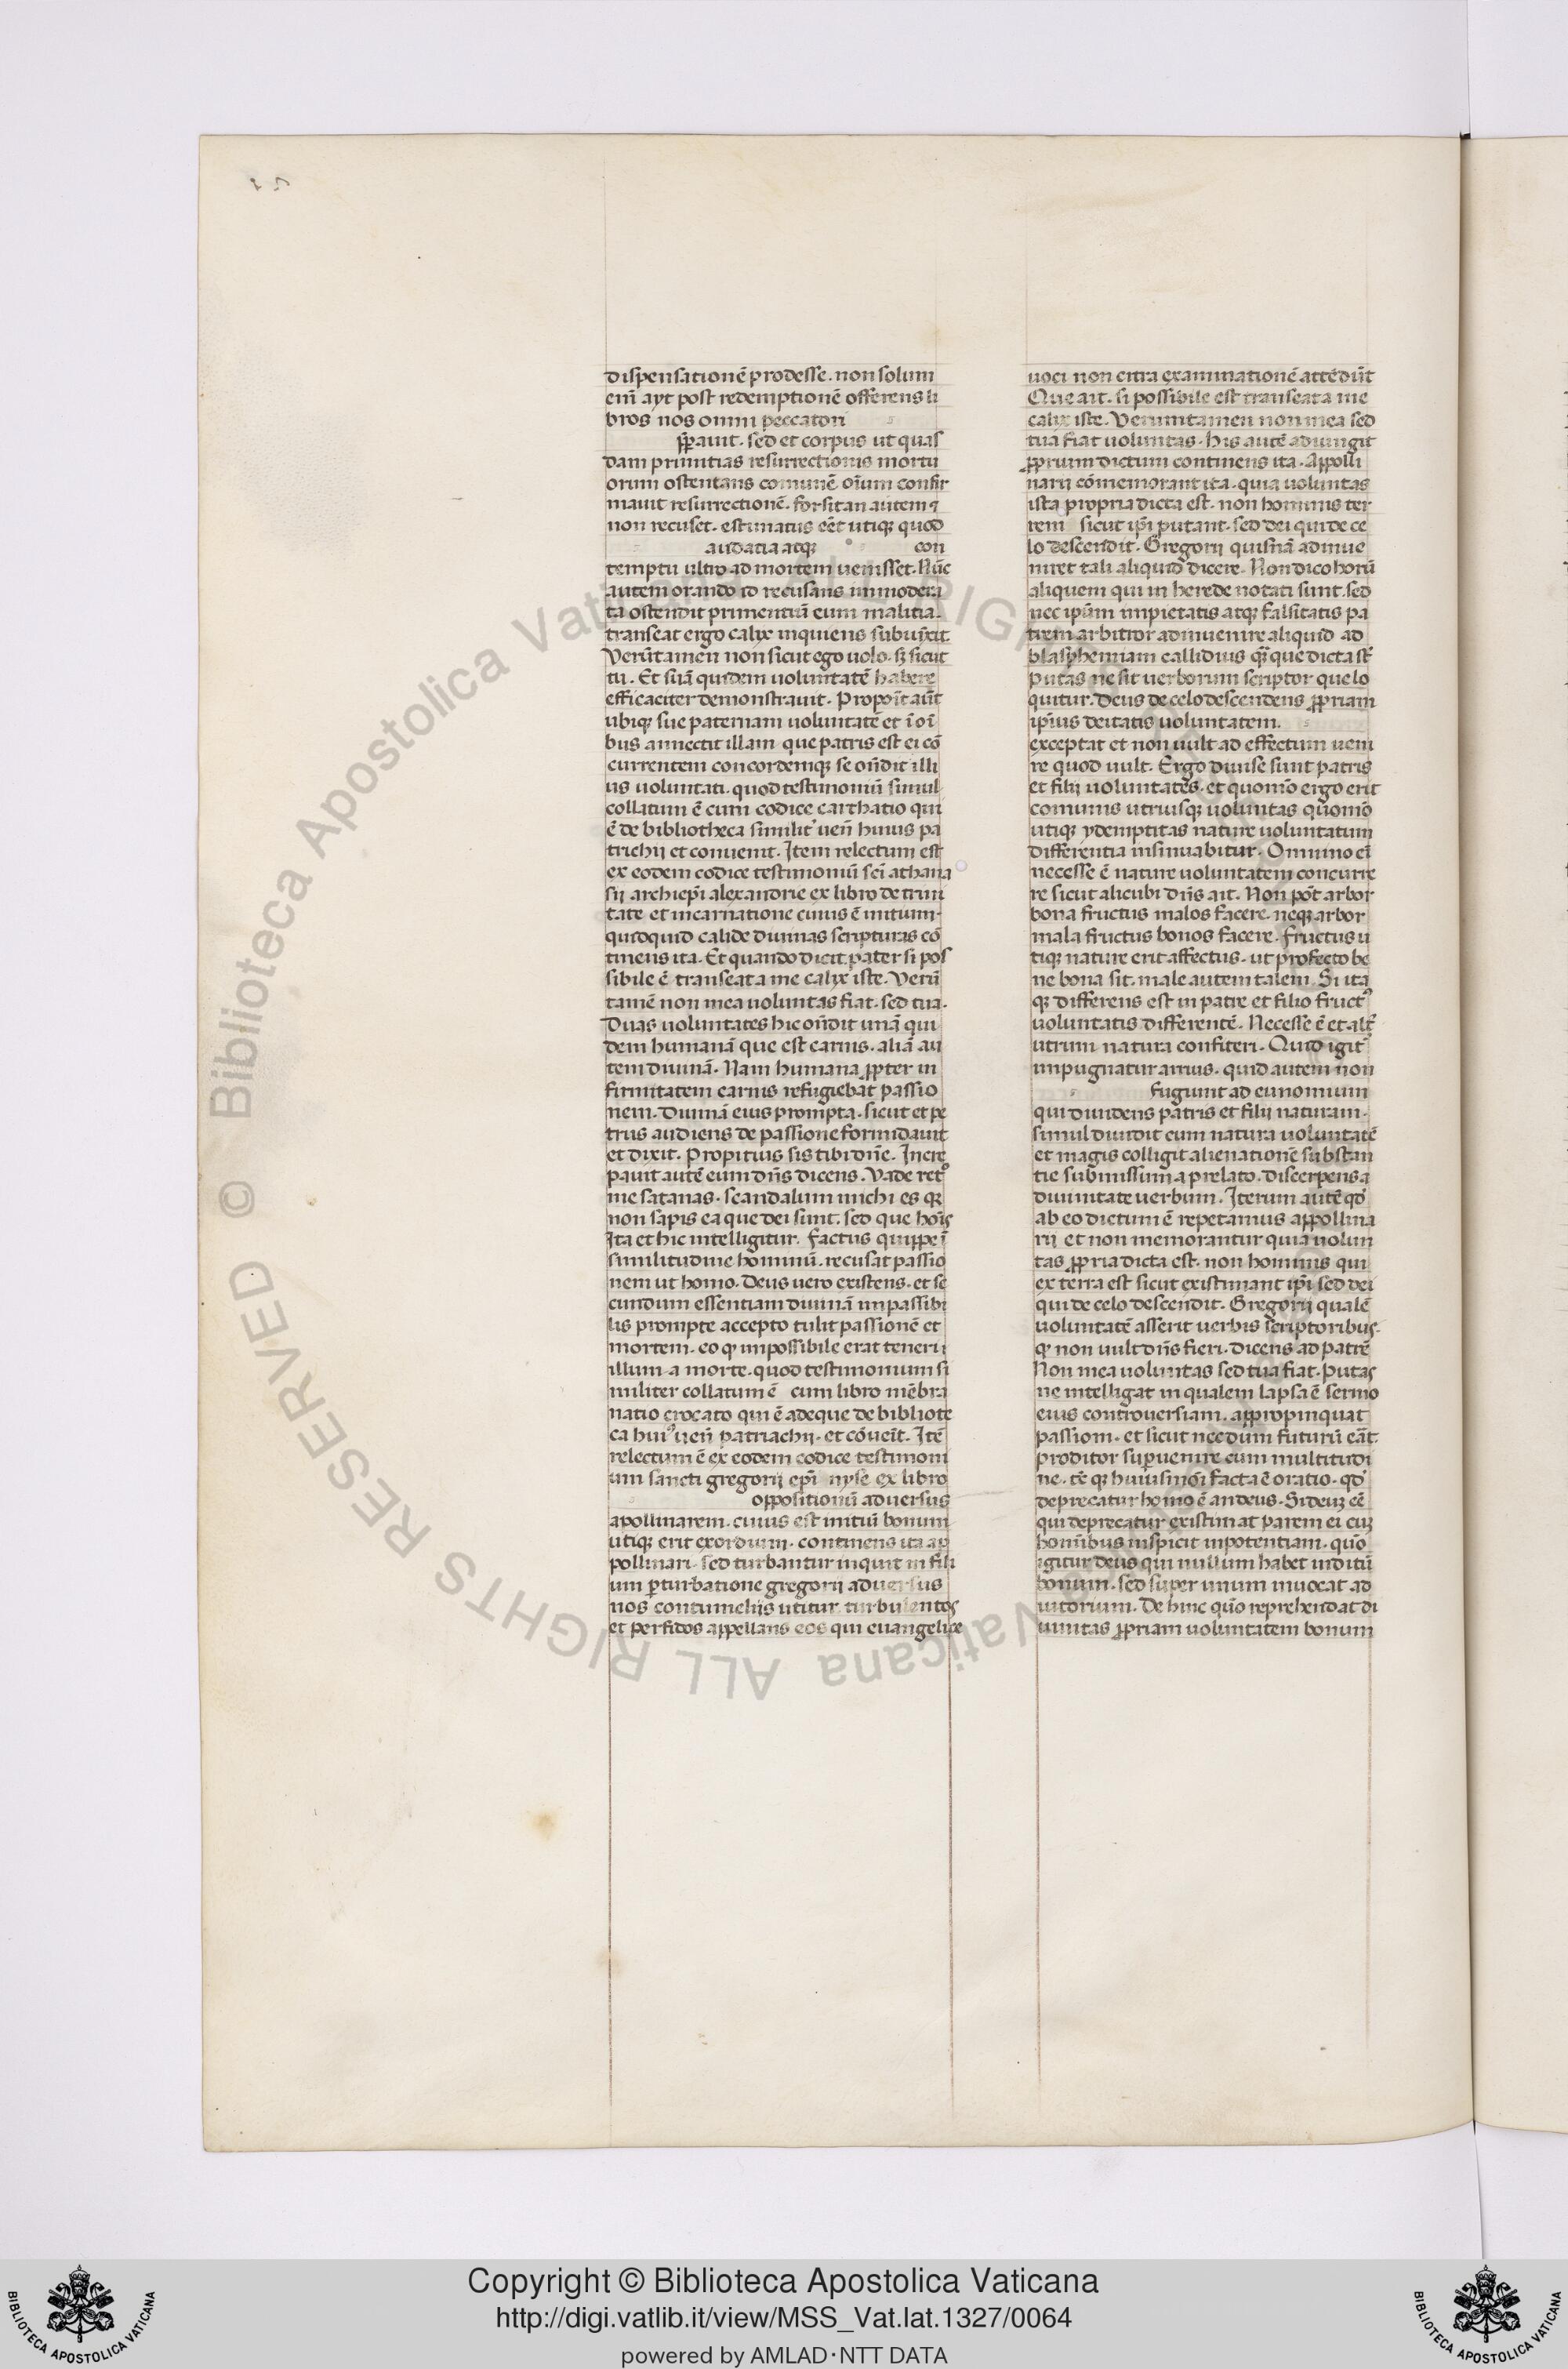 dispensationē prodesse. non solum
eni᷑ ayt post redemptionē offerens li
bros nos omni peccatori
ꝓpauit. sed et corpus ut quas
dam primitias resurrectionis mortu
orum ostentans comunē oīum confir
mauit resurrectionē. forsitan autem
non recuset. estimatus eēt utiqꝫ quod
audatia atqꝫ con
temptu ultro ad mortem uenisset. Nūc
autem orando id recusans inmodera
ta ostendit primentiū eum malitia.
transeat ergo calyx inquiens subiunxit
Verūtamen non sicut ego uolo. sꝫ sicut
tu. Et suā quidem uoluntatē habere
efficaciter demonstrauit. Proponit aūt
ubiqꝫ sue paternam uoluntatē et ī oī
bus annectit illam que patris est ei cō
currentem concordemqꝫ se oñdit illi
us uoluntati. quod testimoniū simul
collatum ē cum codice carthatio qui
ē de bibliotheca similit᷑ ueñ huius pa
trichij et conuenit. Item relectum est
ex eodem codice testimoniū sci athana
sij archiepi alexandrie ex libro de trini
tate et incarnatione cuius ē initium.
quidquid calide diuinas scripturas cō
tinens ita. Et quando dicit pater si pos
sibile ē transeat a me calyx iste. Verū
tamē non mea uoluntas fiat. sed tua.
Duas uoluntates hic oñdit unā qui
dem humanā que est carnis. aliā au
tem diuinā. Nam humana ꝓpter in
firmitatem carnis refugiebat passio
nem. Diuinā eius prompta. sicut et pe
trus audiens de passione formidauit
et dixit. Propitius sis tibi dñe. Incre
pauit autē eum dñs dicens. Vade retᵒ
me satanas. scandalum michi es qꝫ
non sapis ea que dei sunt. sed que hoīs
Ita et hic intelligitur. factus quippe ī
similitudine hominū. recusat passio
nem ut homo. Deus uero existens. et se
cundum essentiam diuinā impassibi
lis prompte accepto tulit passionē et
mortem. eo ꝙ impossibile erat teneri
illum a morte. quod testimonium si
militer collatum ē cum libro mēbra
natio crocato qui ē adeque de bibliote
ca huiꝰ ueñ patriachij. et cōuenit. Itē
relectum ē ex eodem codice testimoni
um sancti gregorij epi nyse ex libro
oppositionū aduersus
apollinarem. cuius est initiū bonum
utiqꝫ erit exordium. continens ita ap
pollinari. sed turbantur inquit in fili
um ꝑturbatione gregorij aduersus
nos contumelijs utitur turbulentos
et perfidos appellans eos qui euangelice
uoci non citra examinationē attēdūt
Que ait. si possibile est transeat a me
calix iste. Verumtamen non mea sed
tua fiat uoluntas. his autē adiungit
ꝓprium dictum continens ita. Appolli
narij cōmemorant ita. quia uoluntas
ista propria dicta est. non hominis ter
rem sicut ipi putant. sed dei qui de ce
lo descendit. Gregorij quisnā adinue
niret tali aliquid dicere. Non dico horū
aliquem qui in herede notati sunt. sed
nec ipūm impietatis atqꝫ falsitatis pa
trem arbitror adinuenire aliquid ad
blasphemiam callidius qꝫ que dicta sꝉ
putas ne sit uerborum scriptor que lo
quitur. Deus de celo descendens ꝓpriam
ipīus deitatis uoluntatem.
exceptat et non uult ad effectum ueni
re quod uult. Ergo diuise sunt patris
et filij uoluntates. et quomō ergo erit
comunis utriusqꝫ uoluntas quomō
utiqꝫ ydemptitas nature uoluntatum
differentia insinuabitur. Omnino ei᷑
necesse ē nature uoluntatem concurre
re sicut alicubi dñs ait. Non pōt arbor
bona fructus malos facere. neqꝫ arbor
mala fructus bonos facere. fructus u
tiqꝫ nature erit affectus. ut profecto be
ne bona sit. male autem talem. Si ita
qꝫ differens est in patre et filio fructꝰ
uoluntatis differentē. Necesse ē et alt᷑
utrum natura confiteri. Quid igit᷑
impugnatur arrius. quid autem non
fugiunt ad eunomium
qui diuidens patris et filij naturam.
simul diuidit cum natura uoluntatē
et magis colligit alienationē substan
tie submissim a prelato. discerpens a
diuinitate uerbum. Iterum autē qd̄
ab eo dictum ē repetamus appollina
rij et non memorantur quia uolun
tas ꝓpria dicta est. non hominis qui
ex terra est sicut existimant ipi sed dei
qui de celo descendit. Gregorij qualē
uoluntatē asserit uerbis scriptoribus.
ꝙ non uult dñs fieri. dicens ad patrē
Non mea uoluntas sed tua fiat. putas
ne intelligat in qualem lapsa ē sermo
eius controuersiam. appropinquat
passioni. et sicut necdum futurū eāt
proditor suꝑuenire cum multitudi
ne. tē qꝫ huiusmōi facta ē oratio. qd̄
deprecatur homo ē an deus. Si deus ēē
qui deprecatur existimat parem ei cuꝫ
hominibus inspicit inpotentiam. quō
igitur deus qui nullum habet inditū
bonum. sed super unum inuocat ad
iutorium. De hinc quō reprehendat di
uinitas ꝓpriam uoluntatem bonum
© Biblioteca Apostolica Vaticana ALL RIGHTS RESERVED
Copyright © Biblioteca Apostolica Vaticana
http://digi.vatlib.it/view/MSS_Vat.lat.1327/0064
powered by AMLAD·NTT DATA
BIBLIOTECA APOSTOLICA VATICANA
BIBLIOTECA APOSTOLICA VATICANA